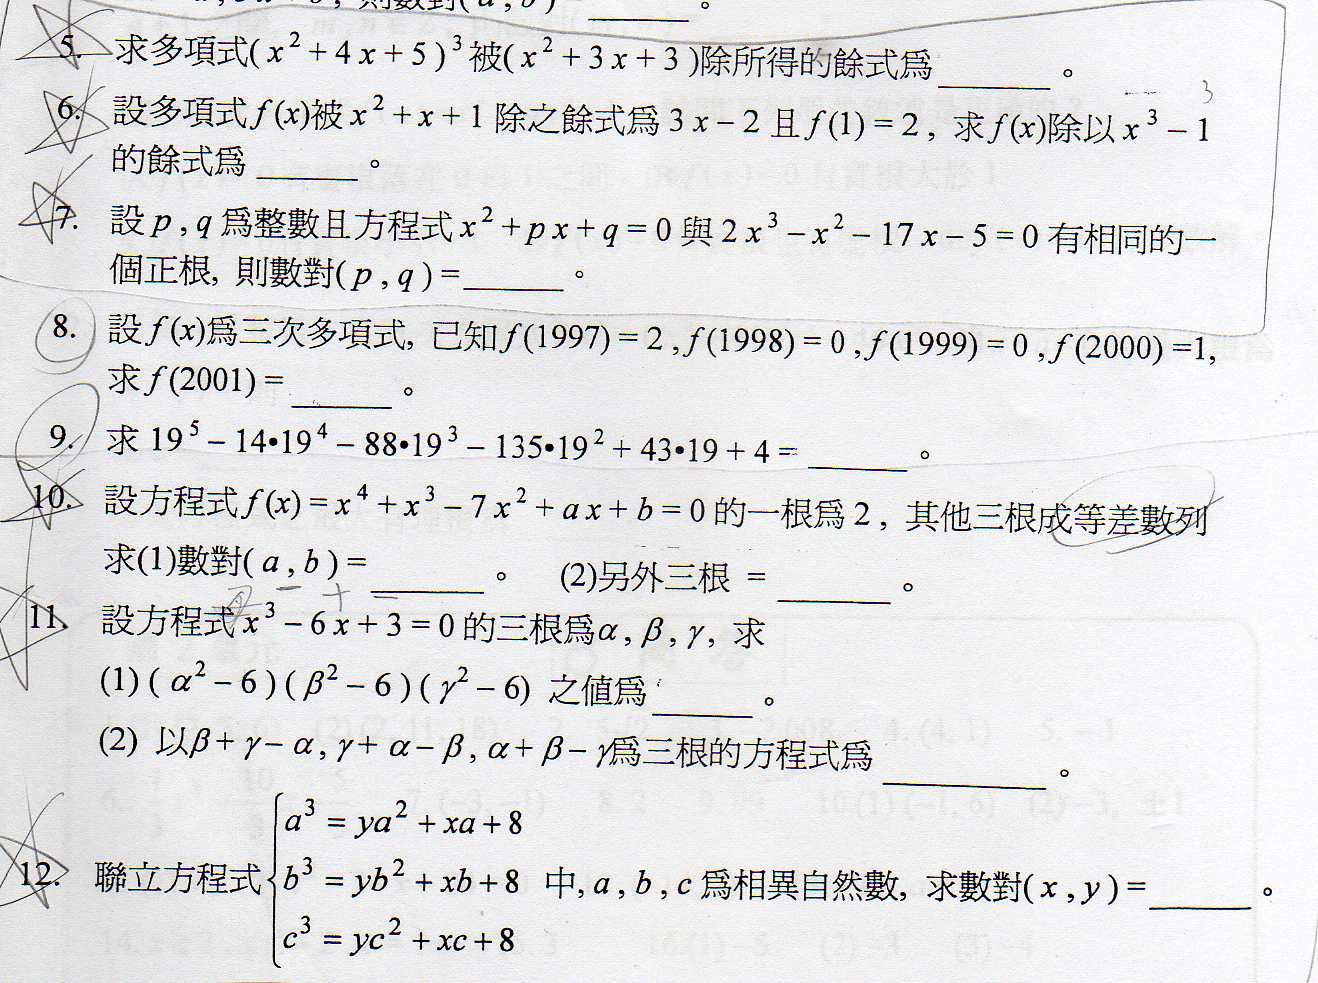 則數對(a,b)
5. 求多項式(x²+4x+5)³被(x²+3x+3)除所得的餘式爲______。
6. 設多項式f(x)被x²+x+1除之餘式爲3x−2且f(1)=2, 求f(x)除以x³−1
的餘式爲______。
7. 設p,q爲整數且方程式x²+px+q=0與2x³−x²−17x−5=0有相同的一
個正根, 則數對(p,q)=______。
8. 設f(x)爲三次多項式, 已知f(1997)=2,f(1998)=0,f(1999)=0,f(2000)=1,
求f(2001)=______。
9. 求19⁵−14•19⁴−88•19³−135•19²+43•19+4=______。
10. 設方程式f(x)=x⁴+x³−7x²+ax+b=0的一根爲2, 其他三根成等差數列
求(1)數對(a,b)=______。 (2)另外三根 =______。
11. 設方程式x³−6x+3=0的三根爲α,β,γ, 求
(1)(α²−6)(β²−6)(γ²−6) 之值爲______。
(2) 以β+γ−α,γ+α−β,α+β−γ爲三根的方程式爲______。
a³=ya²+xa+8
12. 聯立方程式{b³=yb²+xb+8 中,a,b,c爲相異自然數, 求數對(x,y)=______。
c³=yc²+xc+8